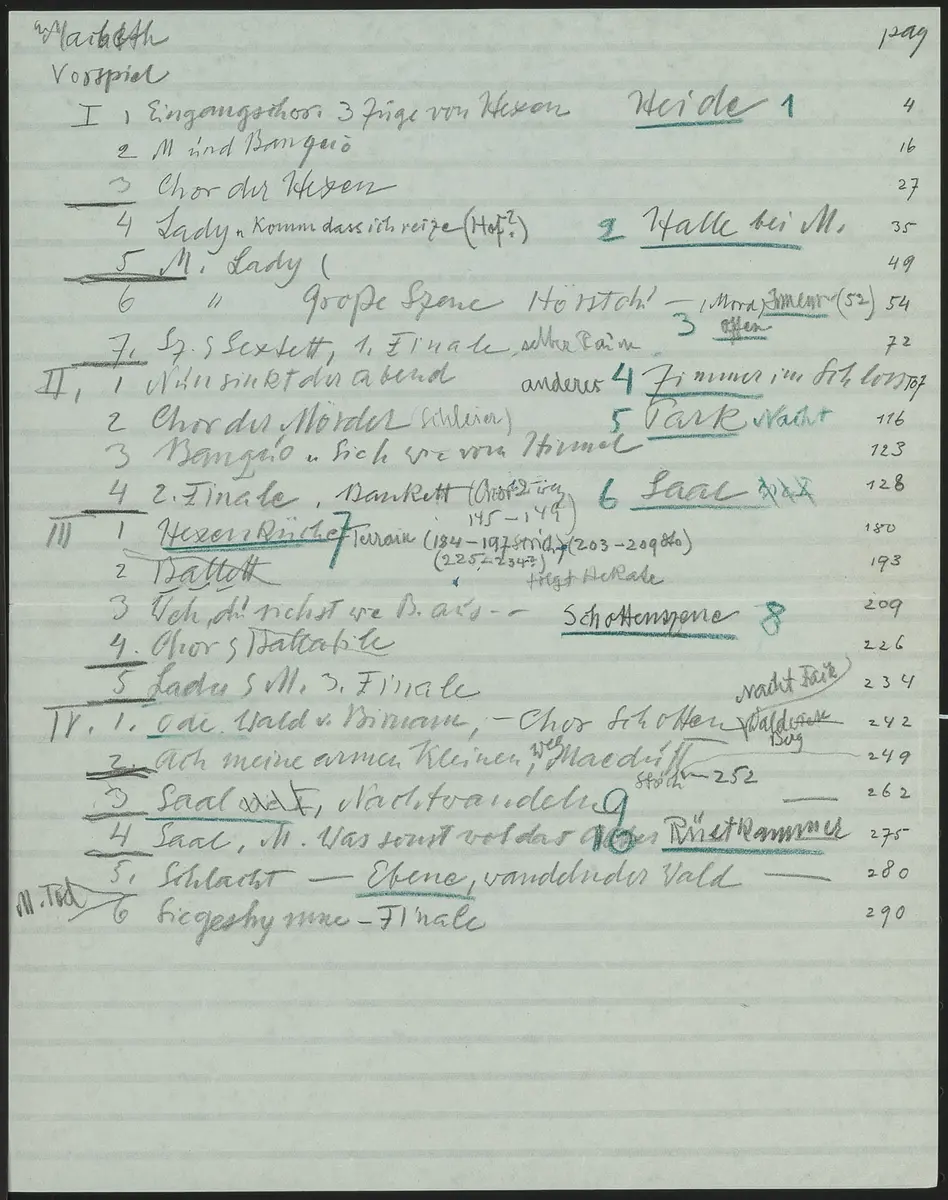 Macbeth pag
Vorspiel
I 1 Eingangschor 3 Züge von Hexen Heide 1 4
2 M und Banquo 16
3 Chor der Hexen 27
4 Lady "Komm dass ich reize (Hof?) 2 Halle bei M. 35
5 M. Lady ( 49
6 " Große Szene Hörst du! — (Mord) (52) 54
3 offen
7. Sz. & Sextett, 1. Finale, selber Raum 72
II, 1 Nun sinkt der Abend anderer 4 Zimmer im Schloss 107
2 Chor der Mörder (Schleier) 5 Park Nacht 116
3 Banquo "Sich wie vom Himmel 123
4 2. Finale, Bankett (Chor 6 Saal 128
145 – 149)
III 1 Hexenküche 7 Terrain (184–197 Strich) (203–209 180
(225–234?)
2 Ballett folgt Hekate 193
3 Weh, du siehst wie B. aus -- Schottenszene 8 209
4. Chor & Ballabile 226
5 Lady & M. 3. Finale 234
Nacht
IV. 1. Öde. Wald v. Birnam, – Chor Schotten 242
2. Ach meine armen Kleinen, weg Macduff 249
Strich — 252
3 Saal, Nachtwandeln 9 — 262
4 Saal, M. Was sonst wol das 10 Rüstkammer 275
5. Schlacht — Ebene, wandelnder Wald — 280
M. Tod
6 Siegeshymne – Finale 290